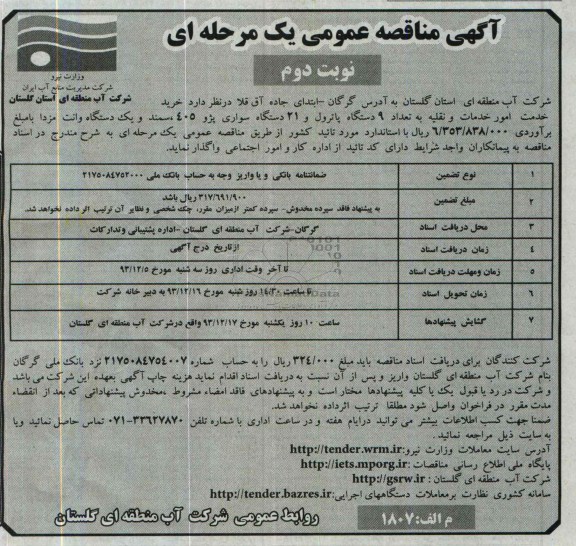 آگهی مناقصه عمومی یک مرحله ای
نوبت دوم
وزارت نیرو
شرکت مدیریت منابع آب ایران
شرکت آب منطقه ای استان گلستان
شرکت آب منطقه ای استان گلستان به آدرس گرگان -ابتدای جاده آق قلا درنظر دارد خرید
خدمت امور خدمات و نقلیه به تعداد ۹ دستگاه پاترول و ۲۱ دستگاه سواری پژو ۴۰۵ سمند و یک دستگاه وانت مزدا بامبلغ
برآوردی ۶/۳۵۳/۸۳۸/۰۰۰ ریال با استاندارد مورد تائید کشور از طریق مناقصه عمومی یک مرحله ای به شرح مندرج در اسناد
مناقصه به پیمانکاران واجد شرایط دارای کد تائید از اداره کار و امور اجتماعی واگذار نماید.
۱ نوع تضمین ضمانتنامه بانکی و یا واریز وجه به حساب بانک ملی ۲۱۷۵۰۸۴۷۵۲۰۰۰
۲ مبلغ تضمین ۳۱۷/۶۹۱/۹۰۰ ریال باشد
به پیشنهاد فاقد سپرده مخدوش- سپرده کمتر ازمیزان مقرر، چک شخصی و نظایر آن ترتیب اثر داده نخواهد شد.
۳ محل دریافت اسناد گرگان-شرکت آب منطقه ای گلستان -اداره پشتیبانی وتدارکات
۴ زمان دریافت اسناد ازتاریخ درج آگهی
۵ زمان ومهلت دریافت اسناد تا آخر وقت اداری روز سه شنبه مورخ ۹۳/۱۲/۵
۶ زمان تحویل اسناد تا ساعت ۱۴/۳۰ روز شنبه مورخ ۹۳/۱۲/۱۶ به دبیر خانه شرکت
۷ گشایش پیشنهادها ساعت ۱۰ روز یکشنبه مورخ ۹۳/۱۲/۱۷ واقع درشرکت آب منطقه ای گلستان
شرکت کنندگان برای دریافت اسناد مناقصه باید مبلغ ۳۲۴/۰۰۰ ریال را به حساب شماره ۲۱۷۵۰۸۴۷۵۴۰۰۷ نزد بانک ملی گرگان
بنام شرکت آب منطقه ای گلستان واریز و پس از آن نسبت به دریافت اسناد اقدام نماید هزینه چاپ آگهی بعهده این شرکت می باشد
و شرکت در رد یا قبول یک یا کلیه پیشنهادها مختار است و به پیشنهادهای فاقد امضاء مشروط ،مخدوش پیشنهاداتی که بعد از انقضاء
مدت مقرر در فراخوان واصل شود مطلقا ترتیب اثرداده نخواهد شد.
ضمنا جهت کسب اطلاعات بیشتر می توانید درایام هفته و در ساعت اداری با شماره تلفن ۳۳۶۲۷۸۷۰-۰۷۱ تماس حاصل نمائید ویا
به سایت ذیل مراجعه نمائید.
آدرس سایت معاملات وزارت نیرو:http://tender.wrm.ir
پایگاه ملی اطلاع رسانی مناقصات :http://iets.mporg.ir
شرکت آب منطقه ای گلستان : http://gsrw.ir
سامانه کشوری نظارت برمعاملات دستگاههای اجرایی:http://tender.bazres.ir
روابط عمومی شرکت آب منطقه ای گلستان
م الف: ۱۸۰۷